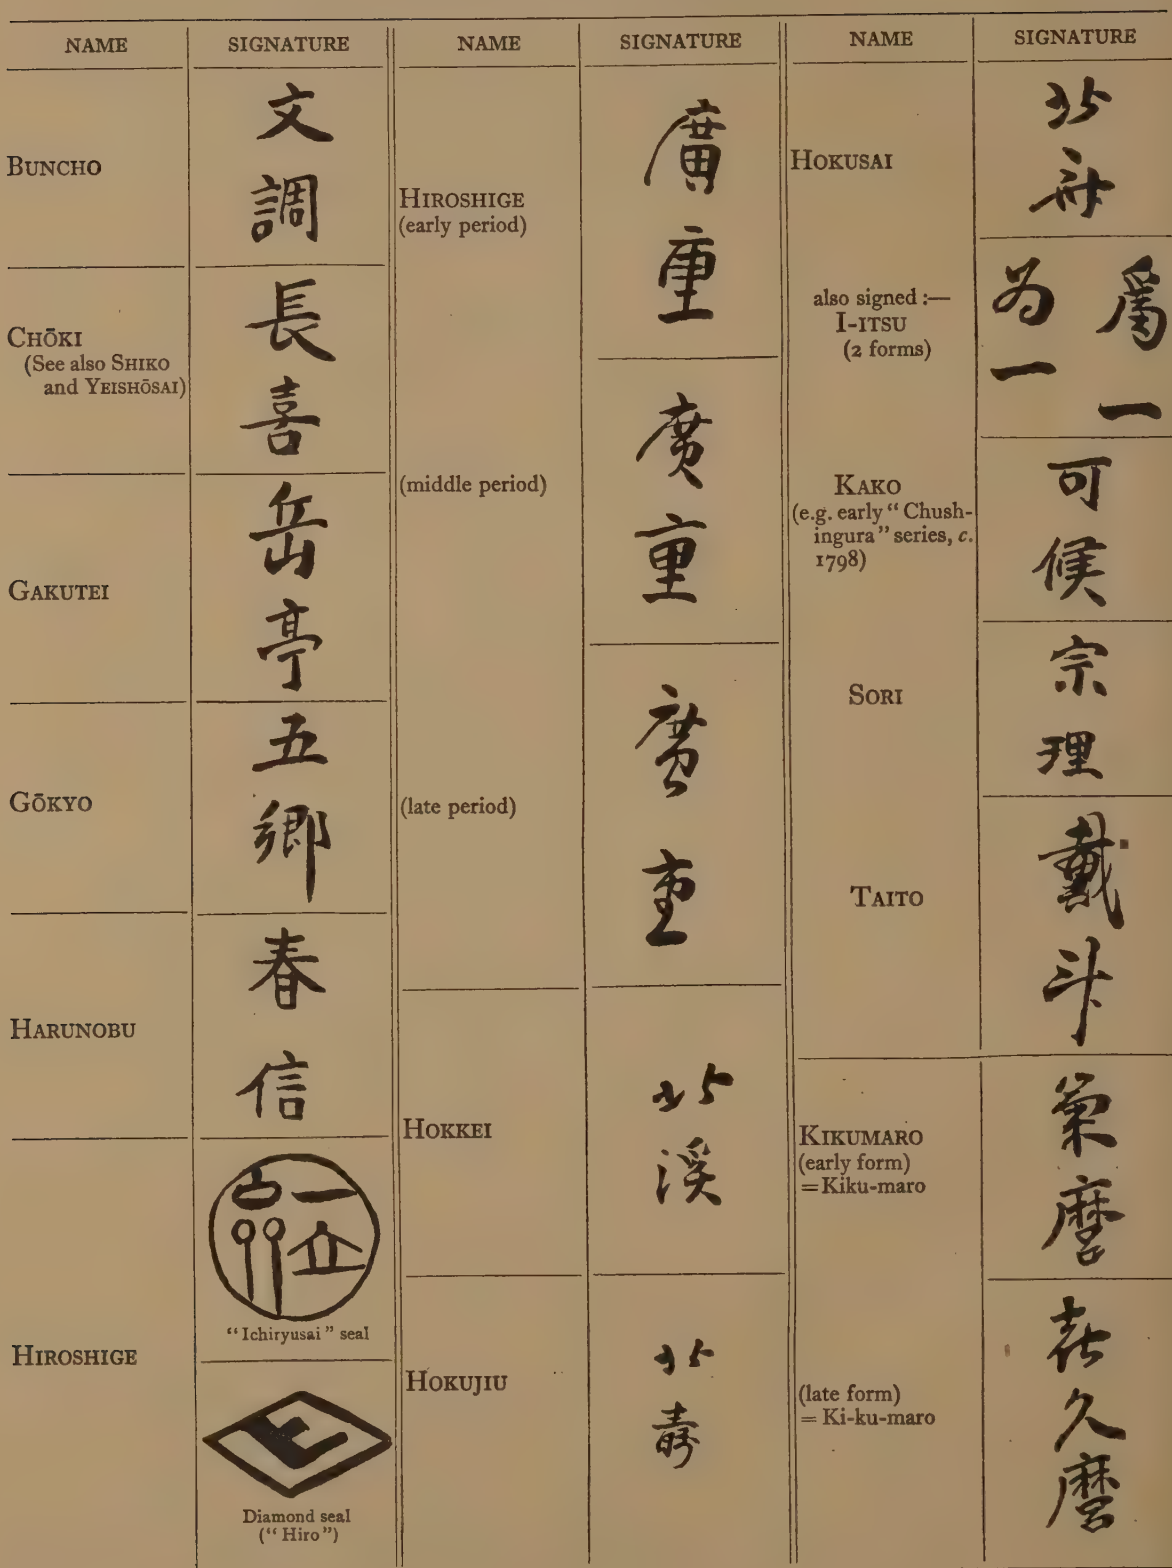 NAME
SIGNATURE
BUNCHO
文調
CHŌKI
(See also SHIKO
and YEISHŌSAI)
長喜
GAKUTEI
岳亭
GŌKYO
五鄉
HARUNOBU
春信
HIROSHIGE
"Ichiryusai" seal
Diamond seal
("Hiro")
NAME
SIGNATURE
HIROSHIGE
(early period)
廣重
(middle period)
廣重
(late period)
廣重
HOKKEI
北溪
HOKUJIU
北壽
NAME
SIGNATURE
HOKUSAI
北斎
also signed :—
I-ITSU
(2 forms)
為一
爲一
KAKO
(e.g. early "Chush-
ingura" series, c.
1798)
可候
SORI
宗理
TAITO
戴斗
KIKUMARO
(early form)
=Kiku-maro
菊麿
(late form)
= Ki-ku-maro
喜久麿